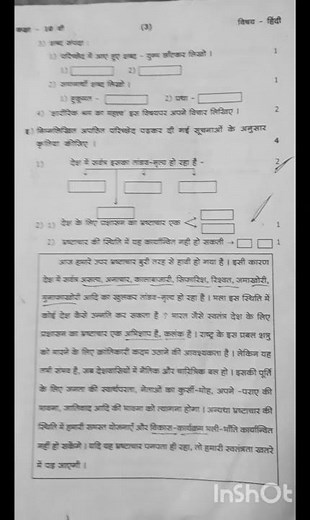 कक्षा - 10 वी (3) विषय - हिंदी
3) शब्द संपदा :
1) परिच्छेद में आए हुए शब्द - युग्म छाँटकर लिखो । 1
1) 2)
2) समानार्थी शब्द लिखो । 1
1) हुकूमत - 2) प्रथा -
4) 'शारीरिक श्रम का महत्व' इस विषयपर अपने विचार लिखिए । 2
इ) निम्नलिखित अपठित परिच्छेद पढ़कर दी गई सूचनाओं के अनुसार 4
कृतियां कीजिए ।
1) देश में सर्वत्र इसका तांडव-नृत्य हो रहा है - 2
2) 1) देश के लिए प्रशासन का भ्रष्टाचार एक 1
2) भ्रष्टाचार की स्थिति में यह कार्यान्वित नहीं हो सकती → 1
आज हमारे उपर भ्रष्टाचार बुरी तरह से हावी हो गया है । इसी कारण
देश में सर्वत्र असत्य, अनाचार, कालाबाजारी, सिफारिश, रिश्वत, जमाखोरी,
मुनाफाखोरी आदि का खुलकर तांडव-नृत्य हो रहा है । भला इस स्थिति में
कोई देश कैसे उन्नति कर सकता है ? भारत जैसे स्वतंत्र देश के लिए
प्रशासन का भ्रष्टाचार एक अभिशाप है, कलंक है । राष्ट्र के इस प्रबल शत्रु
को मारने के लिए क्रांतिकारी कदम उठाने की आवश्यकता है । लेकिन यह
तभी संभव है, जब देशवासियों में नैतिक और चारित्रिक बल हो । इसकी पूर्ति
के लिए जनता की स्वार्थपरता, नेताओं का कुर्सी-मोह, अपने -पराए की
भावना, जातिवाद आदि की भावना को त्यागना होगा । अन्यथा भ्रष्टाचार की
स्थिति में हमारी समस्त योजनाएँ और विकास-कार्यक्रम भली-भाँति कार्यान्वित
नहीं हो सकेंगे । यदि यह भ्रष्टाचार पनपता ही रहा, तो हमारी स्वतंत्रता खतरे
में पड़ जाएगी ।
InShOt